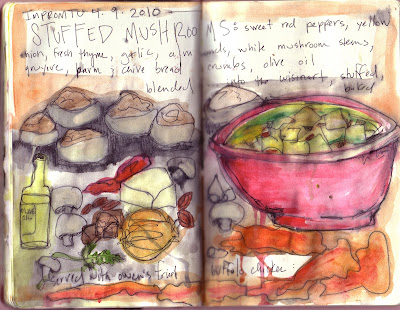 INPROMTU 4. 9. 2010 -
STUFFED MUSHROOMS: sweet red peppers, yellow
onion, fresh thyme, garlic, almonds, white mushroom stems,
gruyere, parm, chive bread crumbs, olive oil
blended into the cuisinart, stuffed,
baked
served with owen's fried buffalo chicken: